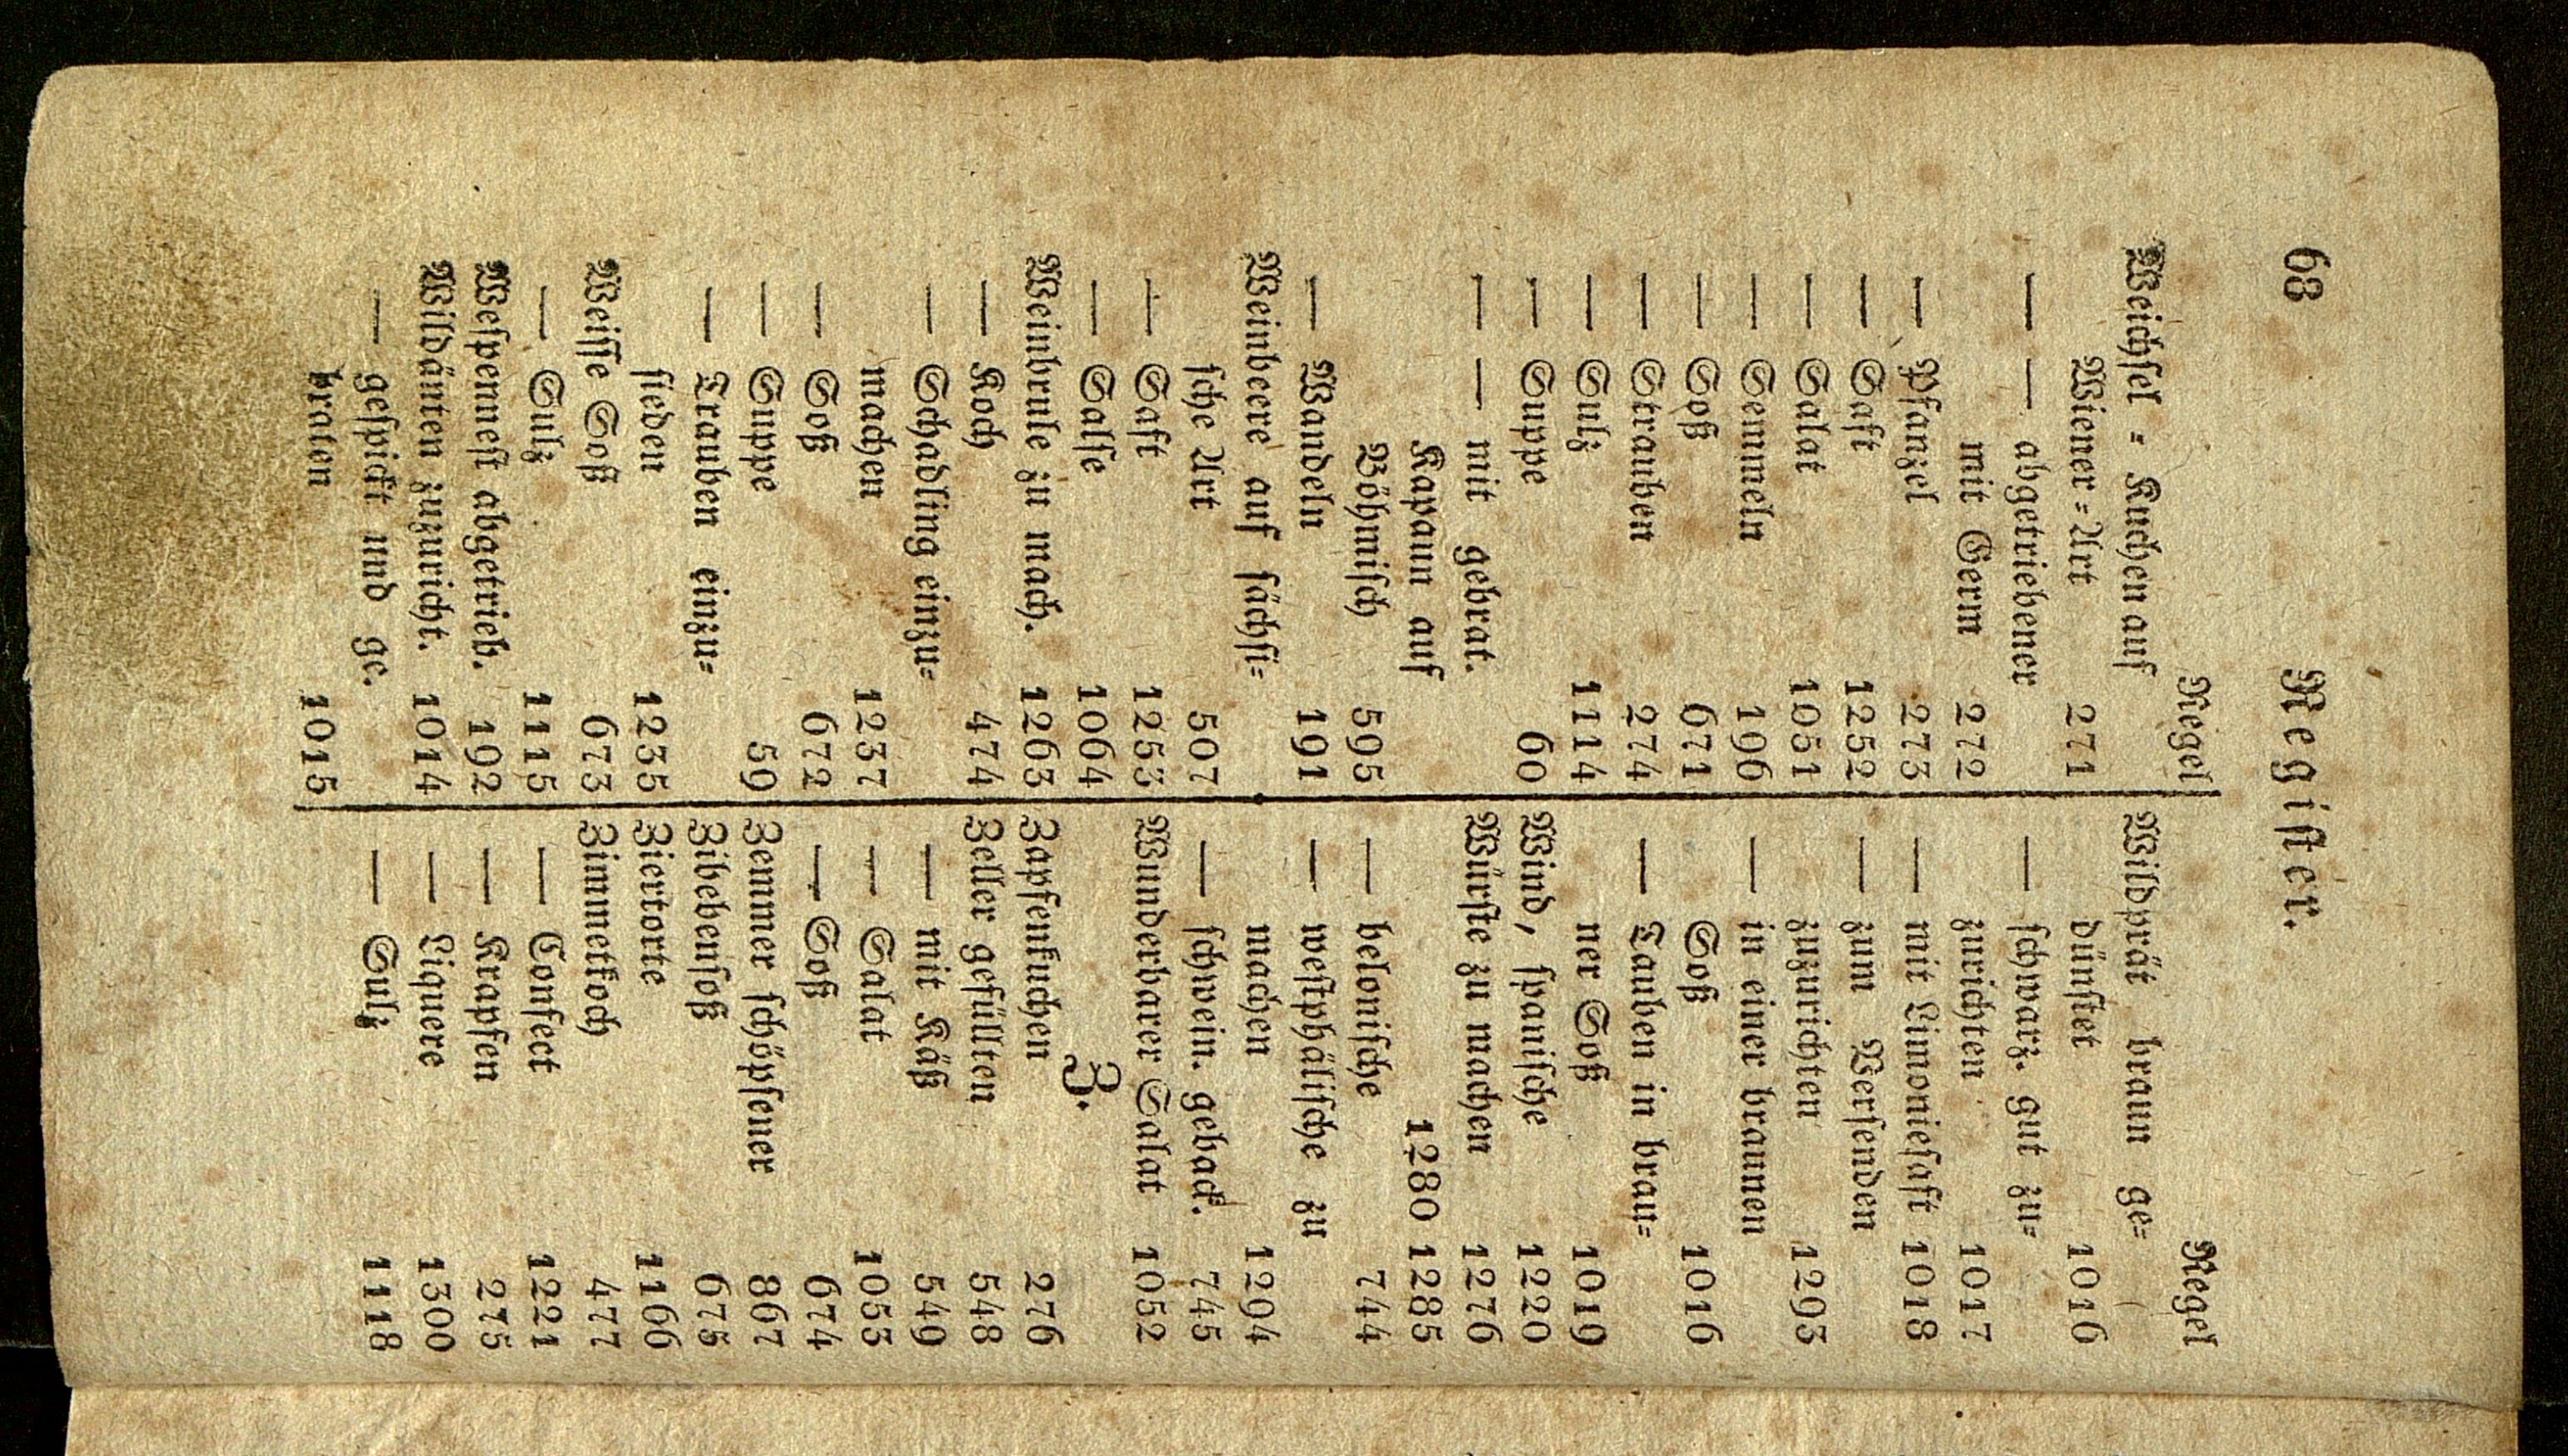 68
Regiſter.
Regel
Weichſel = Kuchen auf
Wiener=Art 271
— — abgetriebener
mit Germ 272
— Pfanzel 273
— Saft 1252
— Salat 1051
— Semmeln 196
— Soß 671
— Strauben 274
— Sulz 1114
— Suppe 60
— — mit gebrat.
Kapaun auf
Böhmiſch 595
— Wandeln 191
Weinbeere auf ſächſi=
ſche Art 507
— Saft 1253
— Salſe 1064
Weinbrule zu mach. 1263
— Koch 474
— Schadling einzu=
machen 1237
— Soß 672
— Suppe 59
— Trauben einzu=
ſieden 1235
Weiſſe Soß 673
— Sulz 1115
Weſpenneſt abgetrieb. 192
Wildänten zuzuricht. 1014
— geſpickt und ge.
braten 1015
Regel
Wildprät braun ge=
dünſtet 1016
— ſchwarz. gut zu=
zurichten 1017
— mit Limonieſaft 1018
— zum Verſenden
zuzurichten 1293
— in einer braunen
Soß 1016
— Tauben in brau=
ner Soß 1019
Wind, ſpaniſche 1220
Würſte zu machen 1276
1280 1285
— beloniſche 744
— weſtphäliſche zu
machen 1294
— ſchwein. geback. 745
Wunderbarer Salat 1052
Z.
Zapfenkuchen 276
Zeller gefüllten 548
— mit Käß 549
— Salat 1053
— Soß 674
Zemmer ſchöpſener 867
Zibebenſoß 675
Ziertorte 1166
Zimmetkoch 477
— Confect 1221
— Krapfen 275
— Liquere 1300
— Sulz 1118